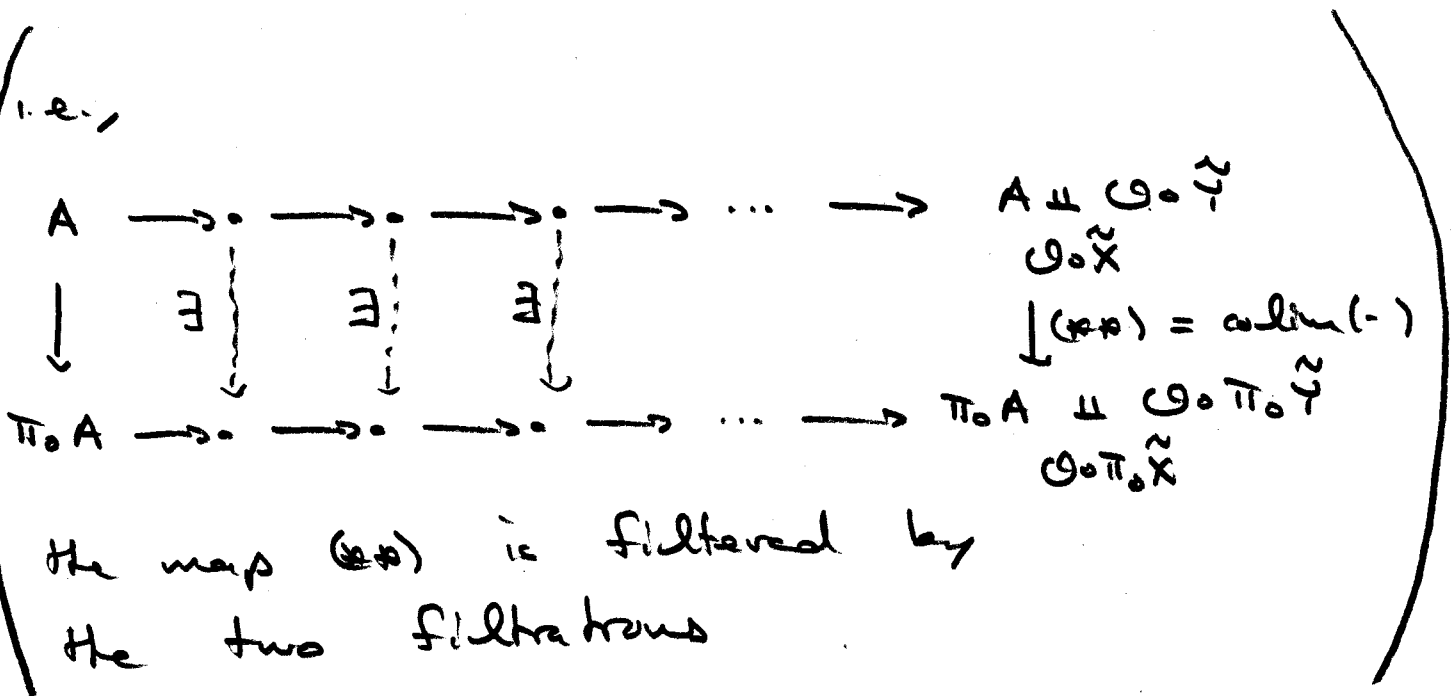 i.e.,
A → • → • → • → ... → A ⨿ 𝒪∘Ỹ
𝒪∘X̃
↓ ∃ ∃ ∃ ↓ (**) = colim(-)
π₀A → • → • → • → ... → π₀A ⨿ 𝒪∘π₀Ỹ
𝒪∘π₀X̃
the map (**) is filtered by
the two filtrations